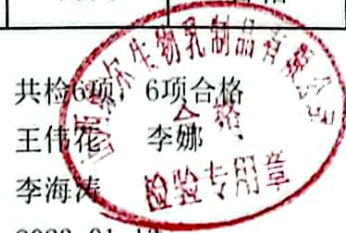 共检6项, 6项合格
王伟花 李娜
李海涛
生物乳制品有限公司
合格
检验专用章